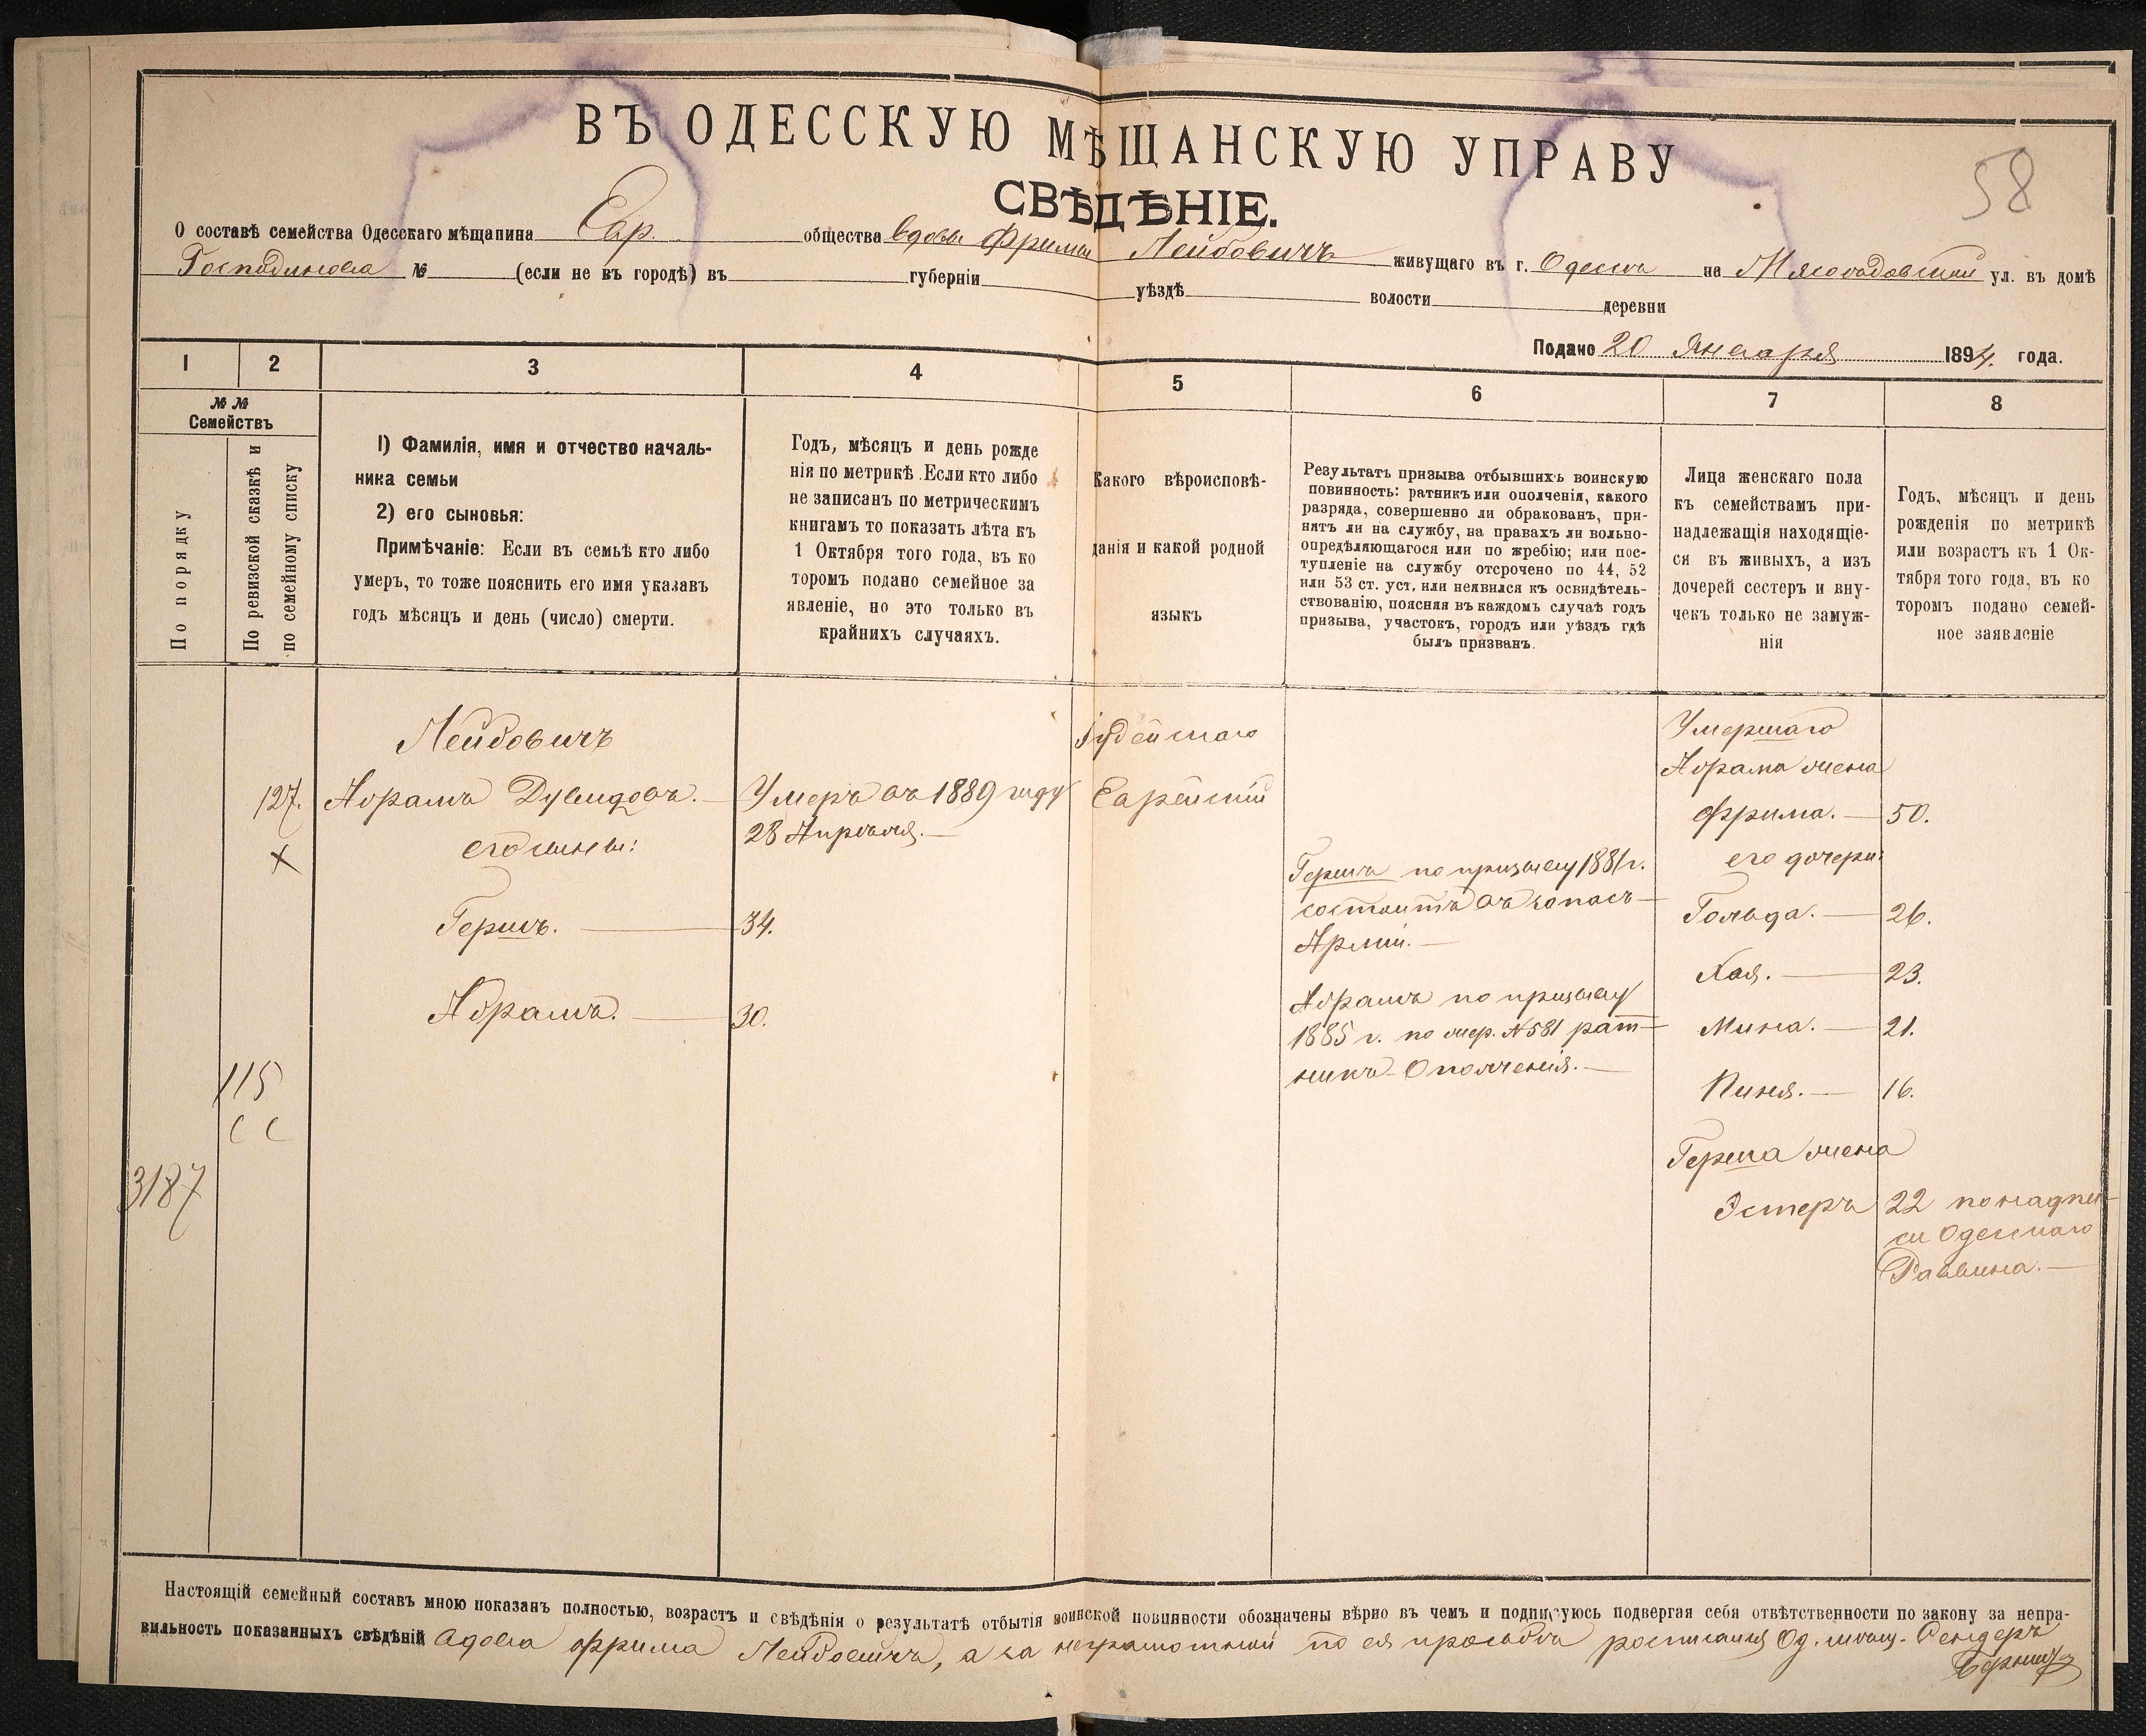 ВЪ ОДЕССКУЮ МѢЩАНСКУЮ УПРАВУ
58
СВѢДѢНІЕ.
О составѣ семейства Одесскаго мѣщанина Евр. общества вдовы Фримы Лейбовичъ живущаго въ г. Одессѣ на Мясоѣдовской ул. въ домѣ
Господинова № (если не въ городѣ) въ губерніи уѣздѣ волости деревни
Подано 20 Января 1894 года.
1 2 3 4 5 6 7 8
№ №
Семействъ
По порядку
По ревизской сказкѣ и
по семейному списку
1) Фамилія, имя и отчество началь-
ника семьи
2) его сыновья:
Примѣчаніе: Если въ семьѣ кто либо
умеръ, то тоже пояснить его имя указавъ
годъ мѣсяцъ и день (число) смерти.
Годъ, мѣсяцъ и день рожде
нія по метрикѣ. Если кто либо
не записанъ по метрическимъ
книгамъ то показать лѣта къ
1 Октября того года, въ ко
торомъ подано семейное за
явленіе, но это только въ
крайнихъ случаяхъ.
Какого вѣроисповѣ-
данія и какой родной
языкъ
Результатъ призыва отбывшихъ воинскую
повинность: ратникъ или ополченія, какого
разряда, совершенно ли обракованъ, при-
нятъ ли на службу, на правахъ ли вольно-
опредѣляющагося или по жребію; или пос-
тупленіе на службу отсрочено по 44, 52
или 53 ст. уст. или неявился къ освидѣтель-
ствованію, поясняя въ каждомъ случаѣ годъ
призыва, участокъ, городъ или уѣздъ гдѣ
былъ призванъ.
Лица женскаго пола
къ семействамъ при-
надлежащія находящіе-
ся въ живыхъ, а изъ
дочерей сестеръ и вну-
чекъ только не замуж-
нія
Годъ, мѣсяцъ и день
рожденія по метрикѣ
или возрастъ къ 1 Ок-
тября того года, въ ко
торомъ подано семей-
ное заявленіе
127.
X
115
3187
Лейбовичъ
Абрамъ Дувидовъ.
его сыновья:
Гершъ.
Абрамъ.
Умеръ въ 1889 году
28 Апрѣля.
34.
30.
Іудейскаго
Еврейскій
Гершъ по призыву 1881 г.
состоитъ въ запасѣ
Арміи.
Абрамъ по призыву
1885 г. по жер. № 581 рат-
никъ Ополченія.
Умершаго
Абрама жена
Фрима. 50.
его дочери:
Гольда. 26.
Хая. 23.
Мина. 21.
Пиня. 16.
Герша жена
Эстеръ 22 по надпи-
си Одесскаго
Раввина.
Настоящій семейный составъ мною показанъ полностью, возрастъ и свѣдѣнія о результатѣ отбытія воинской повинности обозначены вѣрно въ чемъ и подписуюсь подвергая себя отвѣтственности по закону за непра-
вильность показанныхъ свѣдѣній вдова Фрима Лейбовичъ, а за неграмотной по ея просьбѣ росписался Од. мѣщ.